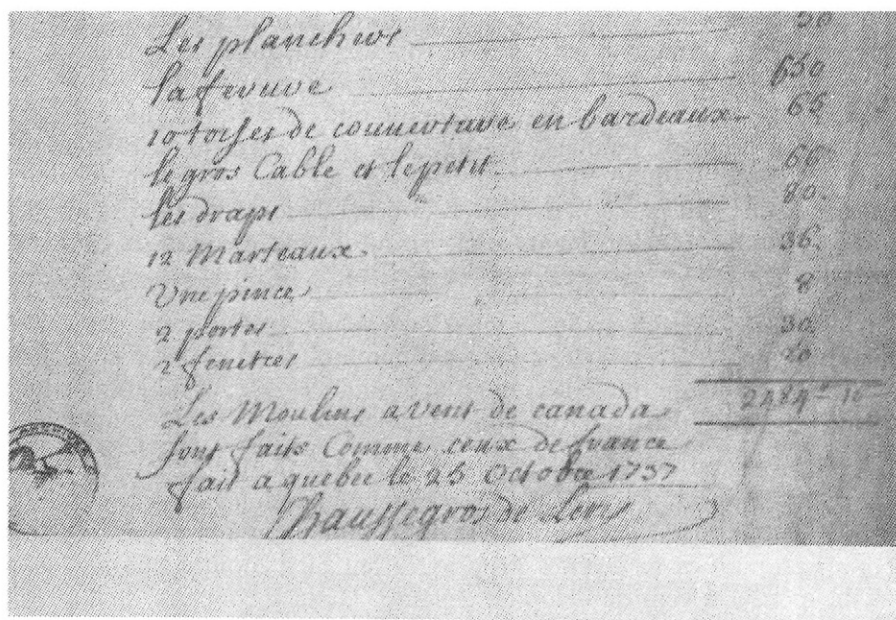 Les planchers 50
la ferrure 650
10 toises de couverture en bardeaux 65
le gros Cable et le petit 66
les draps 80.
12 Marteaux 36.
Une pince 8
2 portes 30
2 fenetres 20
2484# 10
Les Moulins a vent de canada
sont faits Comme ceux de france
fait a quebec le 25 Octobre 1737
Chaussegros de Lery